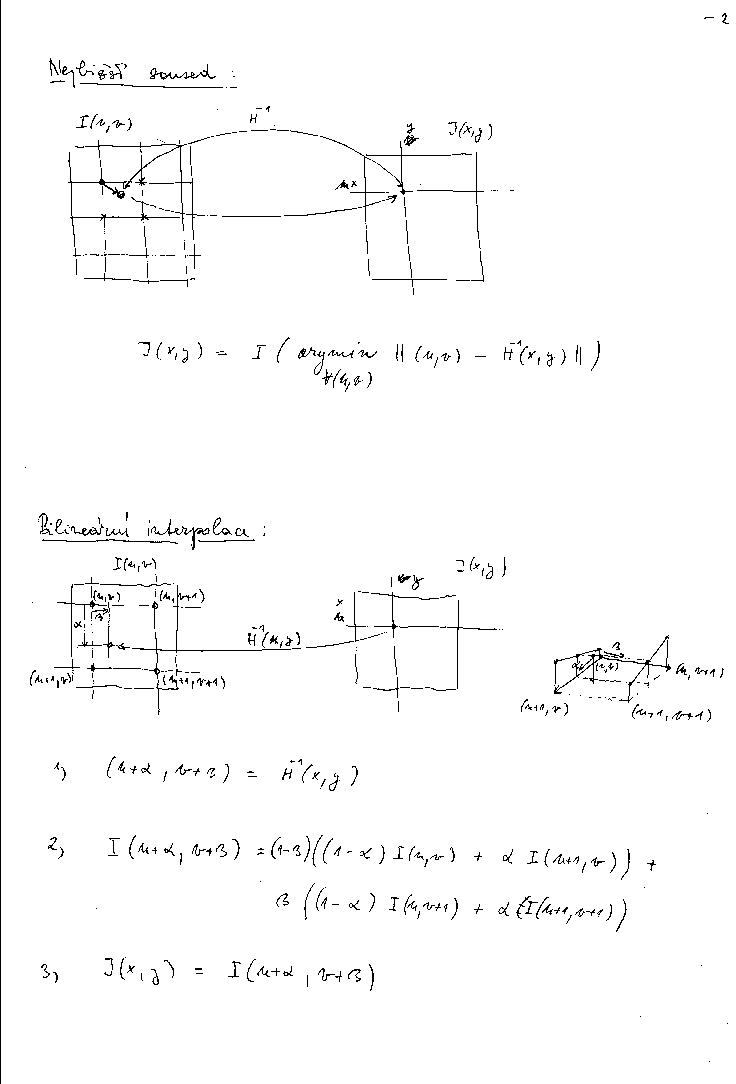 - 2
Nejbližší soused :
I(u,v) H⁻¹ y J(x,y)
x
J(x,y) = I ( argmin || (u,v) - H⁻¹(x,y) || )
∀(u,v)
Bilineární interpolace :
I(u,v) y J(x,y)
(u,v) (u,v+1) x
α β H⁻¹(x,y) β
(u+1,v) (u+1,v+1) α (u,v) (u,v+1)
(u+1,v) (u+1,v+1)
1) (u+α , v+β) = H⁻¹(x,y)
2) I(u+α, v+β) = (1-β)((1-α) I(u,v) + α I(u+1,v)) +
β ((1-α) I(u,v+1) + α I(u+1,v+1))
3) J(x,y) = I(u+α , v+β)